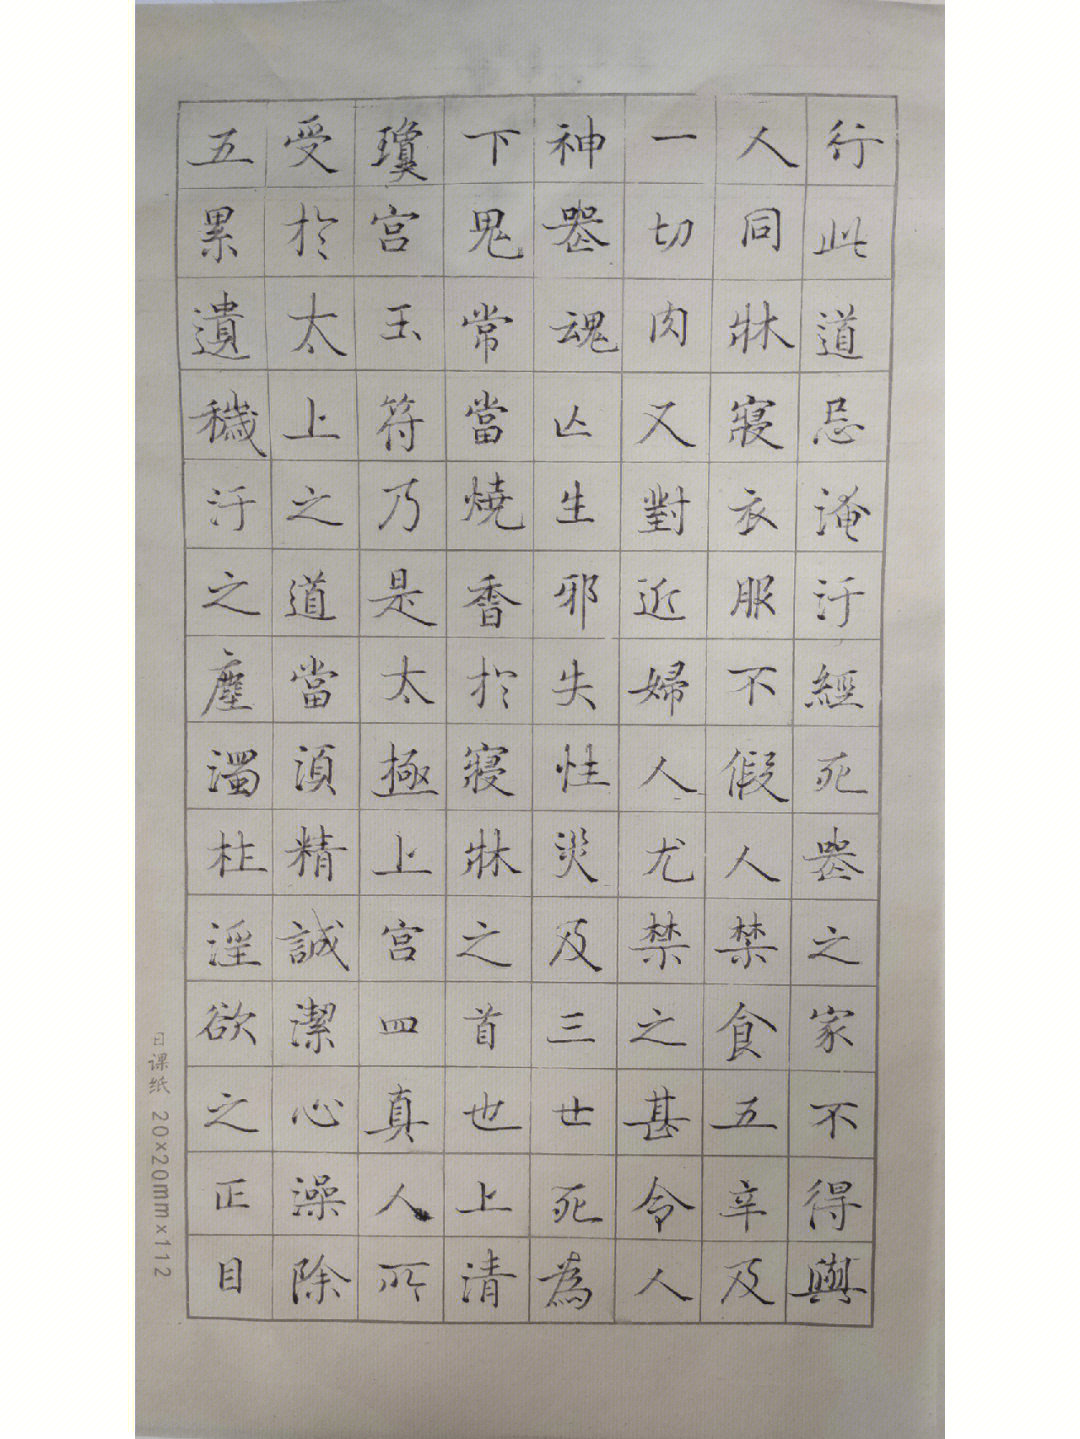 行此道忌淹汙經死喪之家不得與
人同牀寢衣服不假人禁食五辛及
一切肉又對近婦人尤禁之甚令人
神喪魂亡生邪失性災及三世死為
下鬼常當燒香於寢牀之首也上清
瓊宮玉符乃是太極上宮四真人所
受於太上之道當須精誠潔心澡除
五累遺穢汙之塵濁杜淫欲之正目
日课纸 20×20mm×112